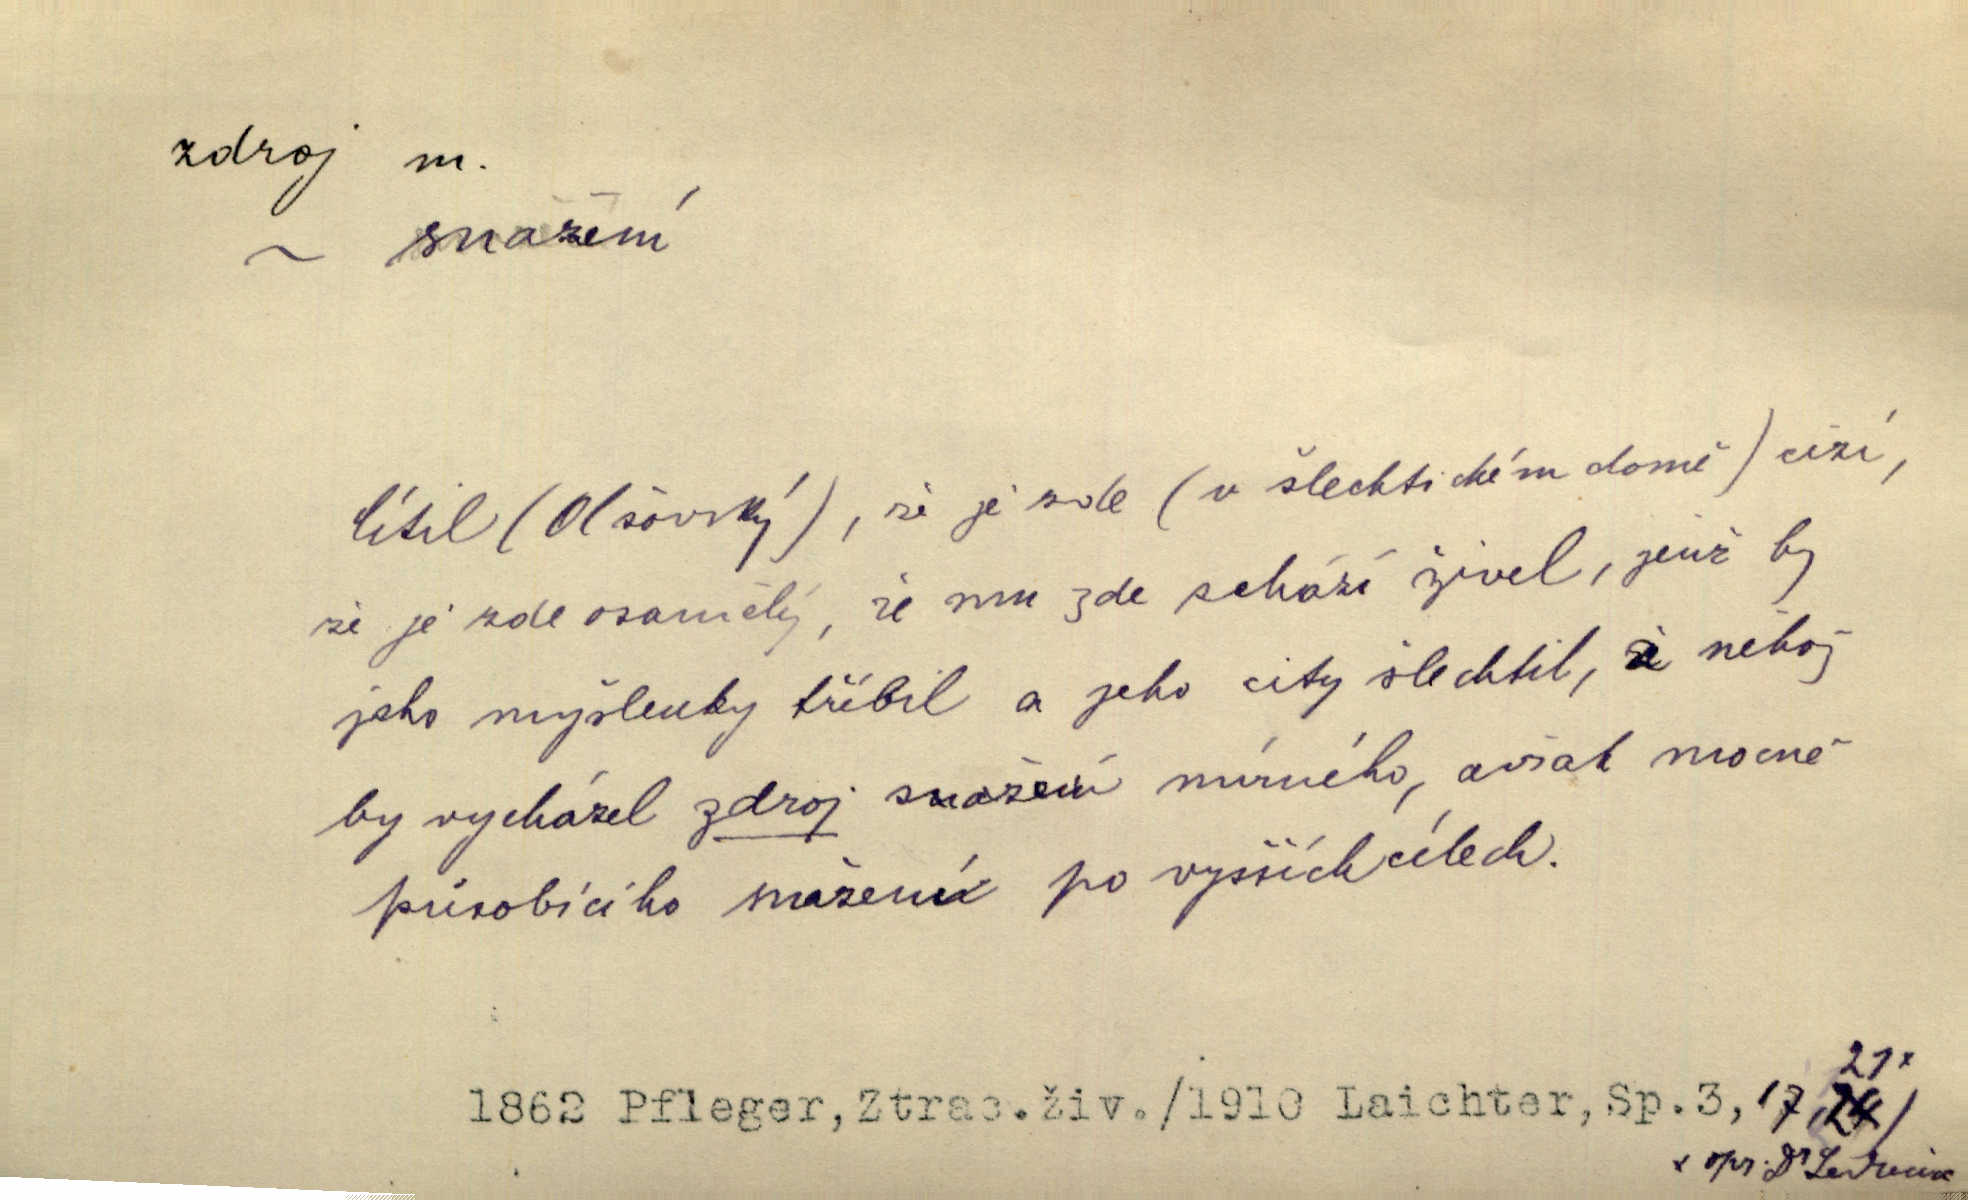 zdroj m.
~ snažení
Cítil (Olšovský), že je zde (v šlechtickém domě) cizí,
že je zde osamělý, že mu zde schází živel, jenž by
jeho myšlenky tříbil a jeho city šlechtil, z něhož
by vycházel zdroj snažení mírného, avšak mocně
působícího snažení po vyšších cílech.
21x
1862 Pfleger,Ztrac.živ./1910 Laichter,Sp.3,17,24/
x opr. Dr